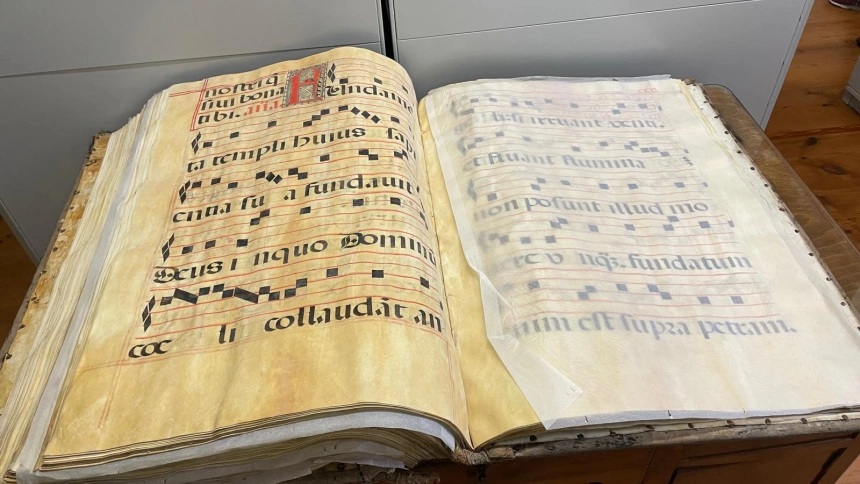 nosterq̃
nui bona
tibi. aña Fundamē
ta templi huius sapi
entia su a fundauit
Deus i nquo Dominũ
coe li collaudãt an
si irruant venti.
et fluant flumina
non posunt illud mo
fundatum
enim est supra petram.